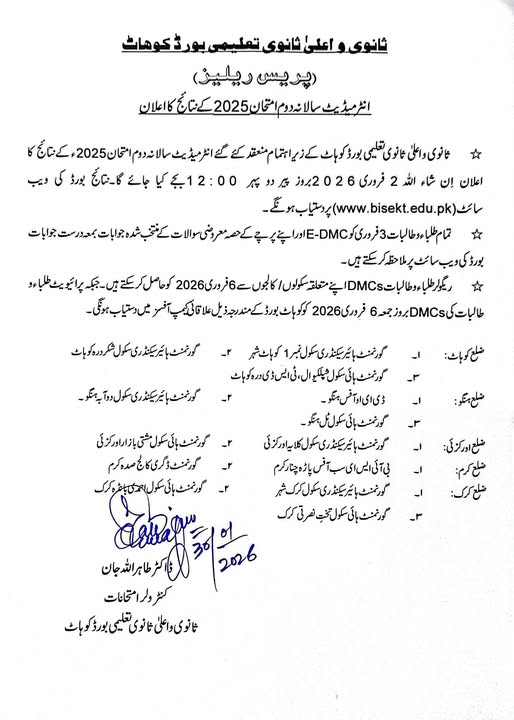 ثانوی و اعلیٰ ثانوی تعلیمی بورڈ کوہاٹ
(پریس ریلیز)
انٹرمیڈیٹ سالانہ دوم امتحان 2025 کے نتائج کا اعلان
☆ ثانوی و اعلیٰ ثانوی تعلیمی بورڈ کوہاٹ کے زیر اہتمام منعقد کئے گئے انٹرمیڈیٹ سالانہ دوم امتحان 2025ء کے نتائج کا
اعلان اِن شاء اللہ 2 فروری 2026 بروز پیر دوپہر 12:00 بجے کیا جائے گا۔ نتائج بورڈ کی ویب
سائٹ (www.bisekt.edu.pk) پر دستیاب ہونگے۔
☆ تمام طلباء و طالبات 3 فروری کو E-DMC اور اپنے پرچے کے حصہ معروضی سوالات کے منتخب شدہ جوابات بمعہ درست جوابات
بورڈ کی ویب سائٹ پر ملاحظہ کر سکتے ہیں۔
☆ ریگولر طلباء و طالبات DMCs اپنے متعلقہ سکولوں/کالجوں سے 6 فروری 2026 کو حاصل کر سکتے ہیں۔ جبکہ پرائیویٹ طلباء و
طالبات کی DMCs بروز جمعہ 6 فروری 2026 کو کوہاٹ بورڈ کے مندرجہ ذیل علاقائی کیمپ آفسز میں دستیاب ہونگی۔
ضلع کوہاٹ: ۱۔ گورنمنٹ ہائیر سیکنڈری سکول نمبر 1 کوہاٹ شہر ۲۔ گورنمنٹ ہائیر سیکنڈری سکول شکردرہ کوہاٹ
۳۔ گورنمنٹ ہائی سکول شہلکیوال، ٹی ایس ڈی درہ کوہاٹ
ضلع ہنگو: ۱۔ ڈی ای او آفس ہنگو۔ ۲۔ گورنمنٹ ہائیر سیکنڈری سکول دوآبہ ہنگو۔
۳۔ گورنمنٹ ہائی سکول ٹل ہنگو۔
ضلع اورکزئی: ۱۔ گورنمنٹ ہائیر سیکنڈری سکول کلایہ اورکزئی ۲۔ گورنمنٹ ہائی سکول مشتی بازار اورکزئی
ضلع کرم: ۱۔ بی آئی ایس ای سب آفس پاڑہ چنار کرم ۲۔ گورنمنٹ ڈگری کالج صدہ کرم
ضلع کرک: ۱۔ گورنمنٹ ہائیر سیکنڈری سکول کرک شہر ۲۔ گورنمنٹ ہائی سکول احمدی بانڈہ کرک
۳۔ گورنمنٹ ہائی سکول تخت نصرتی کرک
30/01
2026
ڈاکٹر طاہر اللہ جان
کنٹرولر امتحانات
ثانوی و اعلیٰ ثانوی تعلیمی بورڈ کوہاٹ